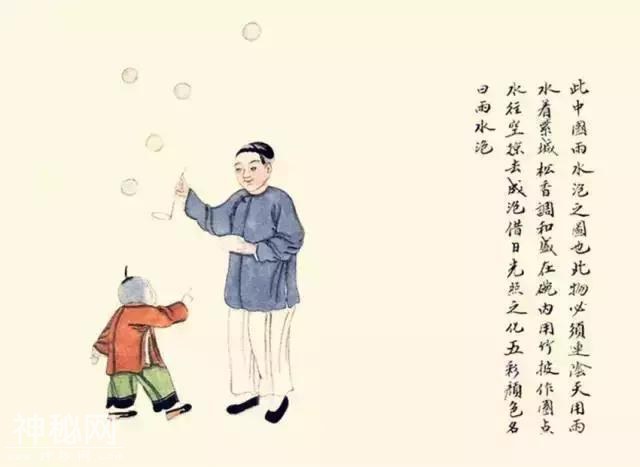 此中國雨水泡之圖也此物必須連陰天用雨
水着紫城松香調和盛在碗內用竹披作圈点
水往空掠去成泡借日光照之化五彩顏色名
曰雨水泡
神秘网